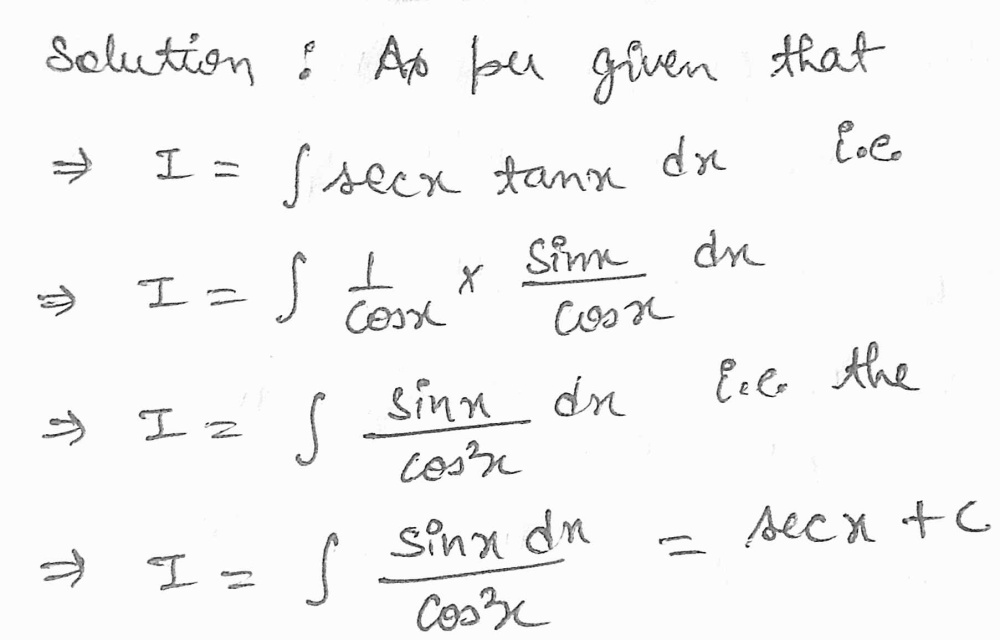 Solution : As per given that
⇒ I = ∫ secx tanx dx i.e.
⇒ I = ∫ 1/cosx × sinx/cosx dx
⇒ I = ∫ sinx/cos²x dx i.e. the
⇒ I = ∫ sinx dx/cos²x = secx + c